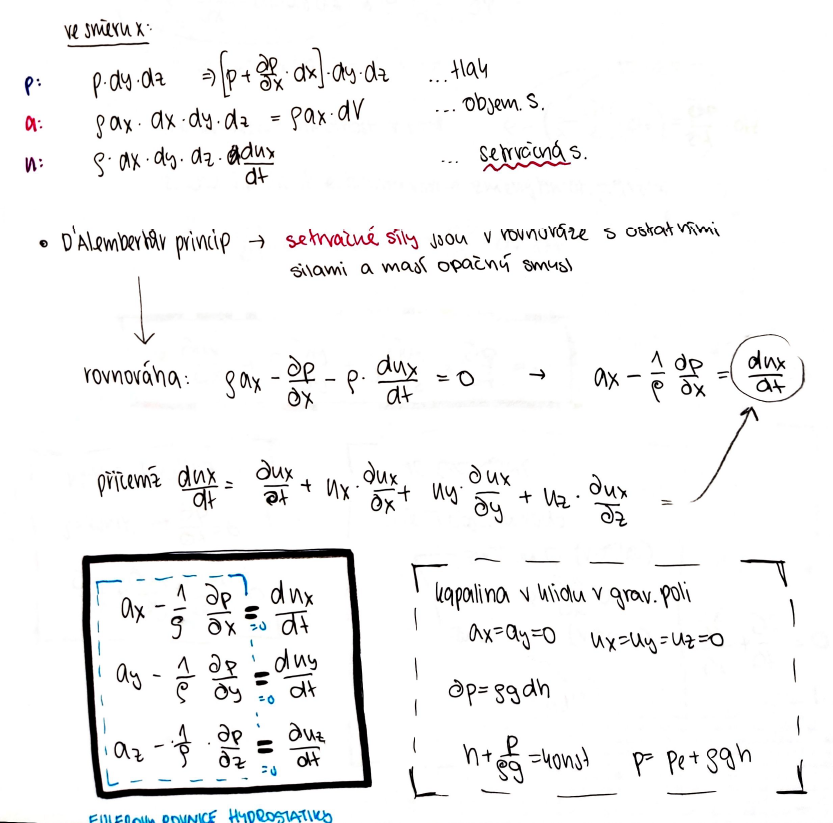 ve směru x:
p: p·dy·dz ⇒ [p + ∂p/∂x · dx]·dy·dz ...tlak
a: ρax· dx·dy·dz = ρax·dV ... objem. s.
u: ρ· dx·dy·dz· dux/dt ... setrvačná s.
• D'Alembertův princip → setrvačné síly jsou v rovnováze s ostatními
silami a mají opačný smysl
rovnováha: ρax - ∂p/∂x - ρ· dux/dt = 0 → ax - 1/ρ ∂p/∂x = dux/dt
přičemž dux/dt = ∂ux/∂t + ux· ∂ux/∂x + uy· ∂ux/∂y + uz· ∂ux/∂z =
ax - 1/ρ ∂p/∂x = dux/dt
=0
ay - 1/ρ ∂p/∂y = duy/dt
=0
az - 1/ρ · ∂p/∂z = ∂uz/dt
=0
EULEROVY ROVNICE HYDROSTATIKY
kapalina v klidu v grav. poli
ax=ay=0 ux=uy=uz=0
∂p=ρgdh
h + p/ρg = konst p= pe+ρgh